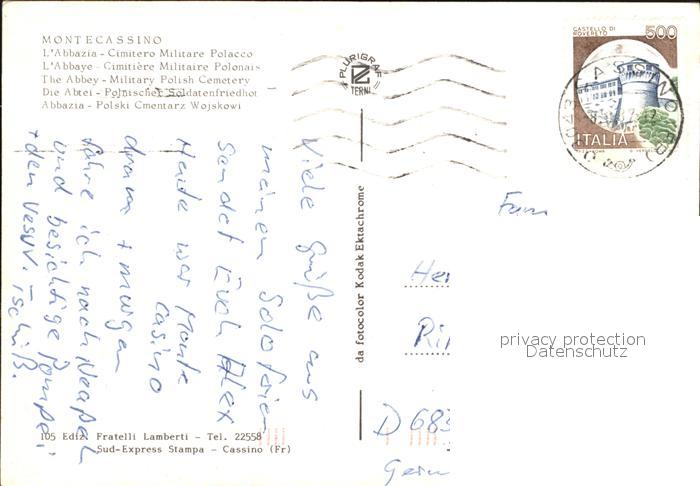 MONTECASSINO
L'Abbazia - Cimitero Militare Polacco
L'Abbaye - Cimitière Militaire Polonais
The Abbey - Military Polish Cemetery
Die Abtei - Polnischer Soldatenfriedhof
Abbazia - Polski Cmentarz Wojskowi
PLURIGRAF
TERNI
CASTELLO DI
ROVERETO
500
ITALIA
CASSINO (FR)
Viele Grüße aus
meinen Solo ferien
sendet Euch Alex
Heute war Monte
Casino
dran + morgen
fahre ich nach Neapel
und besichtige Pompei
+ den Vesuv. Tschüß.
da fotocolor Kodak Ektachrome
Fam
Her
D 683
Germ
privacy protection
Datenschutz
105 Ediz. Fratelli Lamberti - Tel. 22558
Sud-Express Stampa - Cassino (Fr)